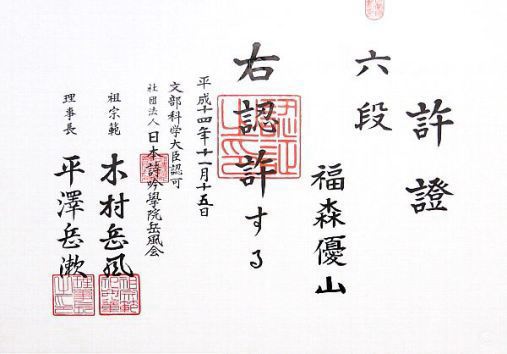 許證
六段
福森優山
右認許する
平成十四年十一月十五日
文部科学大臣認可
社団法人日本詩吟學院岳風会
祖宗範 木村岳風
理事長 平澤岳漱